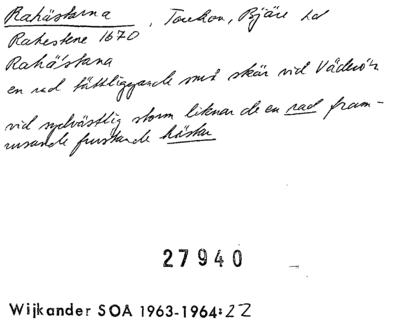 Rahästarna, Torekov, Bjäre hd
Rahestene 1670
Rahästana
en rad tättliggande små skär vid Väderön
vid sydvästlig storm liknar de en rad fram-
rusande frustande hästar
27940
Wijkander SOA 1963-1964:22